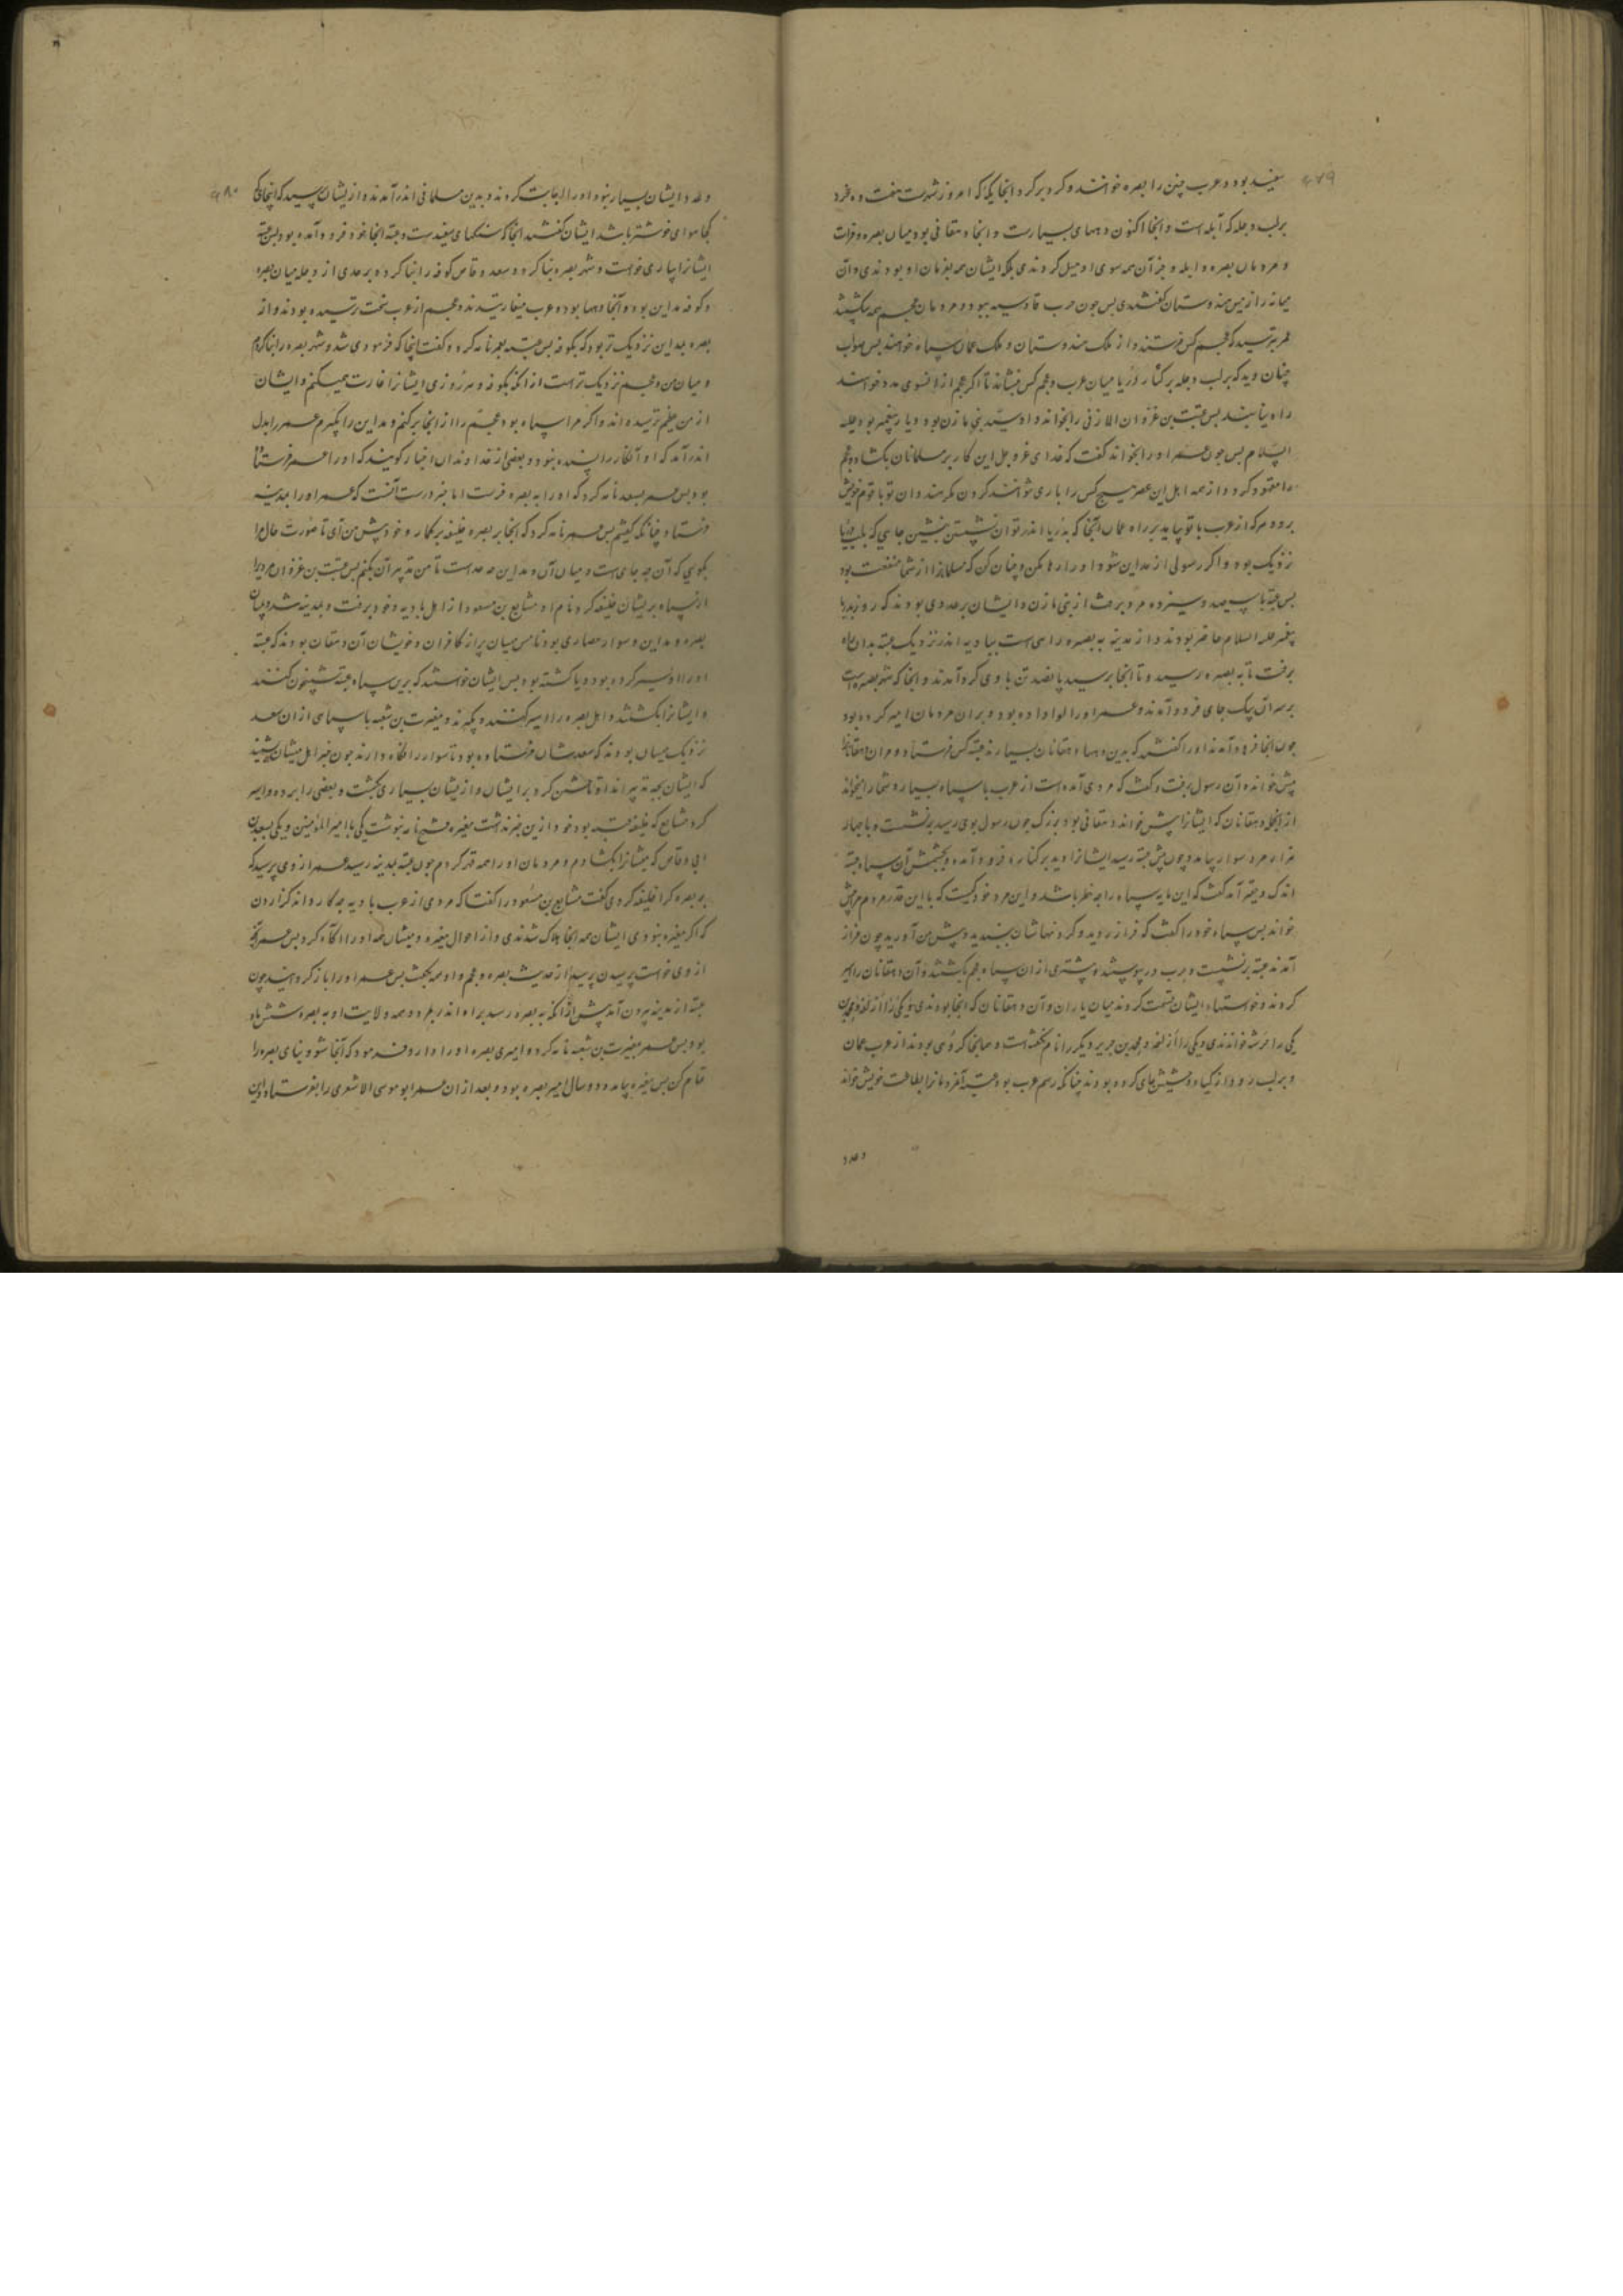 ۴۷۹
سفید بود و عرب چنین را بصره خوانند و کرد بر کرد انجا یکه که امروز شهرست هفت ده خرد
بر لب دجله که آبله است و انجا اکنون دههای بسیارست و انجا دهقانی بود میان بصره و فرات
و مردمان بصره و ابله و جز آن همه سوی او میل کردندی بلکه ایشان همه بفرمان او بودندی و آن
میانه را ارض هندوستان گفتندی پس چون حرب قادسیه ببود و مردمان عجم همه
عمر بترسید که عجم کس فرستند و از ملک هندوستان و ملک عمان سپاه خواهند پس صواب
چنان دید که بر لب دجله بر کنار دریا میان عرب و عجم کس بنشاند تا اکر عجم از انسوی مدد خواهند
راه نیابند پس عتبت بن غزوان المازنی را بخواند و او سید بنی مازن بود و یار پیغمبر بود علیه
السلام پس چون عمر او را بخواند گفت که خدای عز و جل این کار بر مسلمانان بکشاد و عجم
را مقهور کرد و از همه اهل این عصر هیچ کس را یاری نتوانند کردن مکر هندوان تو با قوم خویش
برو و هر که از عرب با تو بیاید بر راه عمان آنجا که بدریا اندر توان نشستن بنشین جایی که بلب دریا
نزدیک بود و اکر رسولی از مداین شود او را رها مکن و چنان کن که مسلمانرا از شما منفعت بود
پس عتبه با سیصد و سیزده مرد برفت از بنی مازن و ایشان بر عددی بودند که روز بدر با
پیغمبر علیه السلام حاضر بودند و از مدینه به بصره راهی است ببادیه اندر نزدیک عتبه بدان راه
برفت تا به بصره رسید و تا انجا برسید پانصد تن با وی کرد آمدند و انجا که شهر بصره است
بر سه آن یک جای فرود آمدند و عمر او را لوا داده بود و بران مردمان امیر کرده بود
چون انجا فرود آمدند او را گفتند که بدین دهها دهقانان بسیارند عتبه کس فرستاد و مران دهقانانرا
پیش خواند و آن رسول برفت و گفت که مردی آمده است از عرب با سپاه بسیار و شما را میخواند
از انجمله دهقانان که ایشانرا پیش خواند دهقانی بود بزرک چون رسول بوی رسید بر نشست و با چهار
هزار مرد سوار بیامد و چون پیش عتبه رسید ایشانرا دید بر کناره فرود آمده و بچشمش آن سپاه عتبه
اندک و حقیر آمد گفت که این مایه سپاه را چه خطر باشد و این مرد خود کیست که با این قدر مردم مرا پیش
خواند پس سپاه خود را گفت که فراز روید و کردنهاشان ببندید و پیش من آورید چون فراز
آمدند عتبه بر نشست و حرب در پیوستند و بیشتری از ان سپاه عجم بکشتند و آن دهقانان را اسیر
کردند و خواستهاء ایشان قسمت کردند میان یاران و آن دهقانان که انجا بودندی
یکی را فرشه خواندندی و یکی را و محمد بن جریر دیکر را نام نکفته است و همانجا کروهی بودند از عرب عمان
و بر لب رود از کیاه و جای کرده بودند چنانکه رسم عرب بود عتبه آنمردمانرا بطاعت خویش خواند
و عدد
۴۸۰
و عدد ایشان بسیار نبود او را اجابت کردند و بدین مسلمانی اندر آمدند و از ایشان بپرسید که اینجا یکی
کجا هوای خوشتر باشد ایشان گفتند انجا که سنکهای سفیدست و عتبه انجا خود فرود آمده بود پس عتبه
ایشانرا یاری خواست و شهر بصره بنا کرد و سعد وقاص کوفه را بنا کرده بر حدی از دجله میان بصره
و کوفه مداین بود و آنجا دهها بود و عرب میغارتیدند و عجم از عرب سخت ترسیده بودند و از
بصره بمداین نزدیک تر بود که بکوفه پس عتبه بعمر نامه کرد و گفت اینجا که فرمودی شد و شهر بصره را بنا کردم
و میان من و عجم نزدیک تر است از انکه بکوفه و هر روزی ایشانرا غارت میکنم و ایشان
از من عظیم ترسیده اند و اکر مرا سپاه بود عجم را از انجا بر کنم و مداین را بگیرم عمر را بدل
اندر آمد که او آنکار را پسنده نبود و بعضی از خداوندان اخبار کویند که او را عمر فرستاده
بود پس عمر بسعد نامه کرد که او را به بصره فرست اما خبر درست آنست که عمر او را بمدینه
فرستاد چنانکه کفتیم پس عمر نامه کرد که انجا بر بصره خلیفه بر کمار و خود پیش من آی تا صورت حال مرا
بکویی که آن چه جای است و میان آن و مداین چه حدست تا من تدبیر آن بکنم پس عتبت بن غزوان مردیرا
از سپاه بریشان خلیفه کرد نام او مشایع بن مسعود از اهل بادیه و خود برفت و بمدینه شد و میان
بصره و مداین دسوار حصاری بود نامش میسان پر از کافران و خویشان آن دهقان بودند که عتبه
او را اسیر کرده بود و یا کشته بود پس ایشان خواستند که برین سپاه عتبه شبیخون کنند
و ایشانرا بکشند و اهل بصره را اسیر کنند و بگیرند و مغیرت بن شعبه با سپاهی از ان سعد
نزدیک میسان بودند که سعدشان فرستاده بود تا سواد را نکاه دارند چون خبر اهل میسان بشنید
که ایشان بچه تدبیر اند او تاختن کرد بر ایشان و از یشان بسیاری بکشت و بعضی را برده و اسیر
کرد مشایع که خلیفه عتبه بود خود ازین خبر نداشت مغیره فتح نامه بنوشت یکی با امیر المؤمنین و یکی بسعد بن
ابی وقاص که میسانرا بکشادم و مردمان او را همه قهر کردم چون عتبه بمدینه رسید عمر از وی پرسید که
بر بصره کرا خلیفه کردی گفت مشایع بن مسعود را گفتا که مردی از عرب بادیه چه کار داند کزاردن
که اکر مغیره نبودی ایشان همه انجا هلاک شدندی و از احوال مغیره و میسان همه او را اآکاه کرد پس عمر آنچه
از وی خواست پرسیدن پرسید از حدیث بصره و عجم و او همه بکفت پس عمر او را باز کردانید چون
عتبه از مدینه بیرون آمد پیش از انکه به بصره رسید براه اندر بمرد و همه ولایت او به بصره شش ماه
بود پس عمر بمغیرت بن شعبه نامه کرد و امیری بصره او را داد و فرمود که آنجا شو و بنای بصره را
تمام کن پس مغیره بیامد و دو سال امیر بصره بود و بعد از ان عمر ابو موسی الاشعری را بفرستاد و این